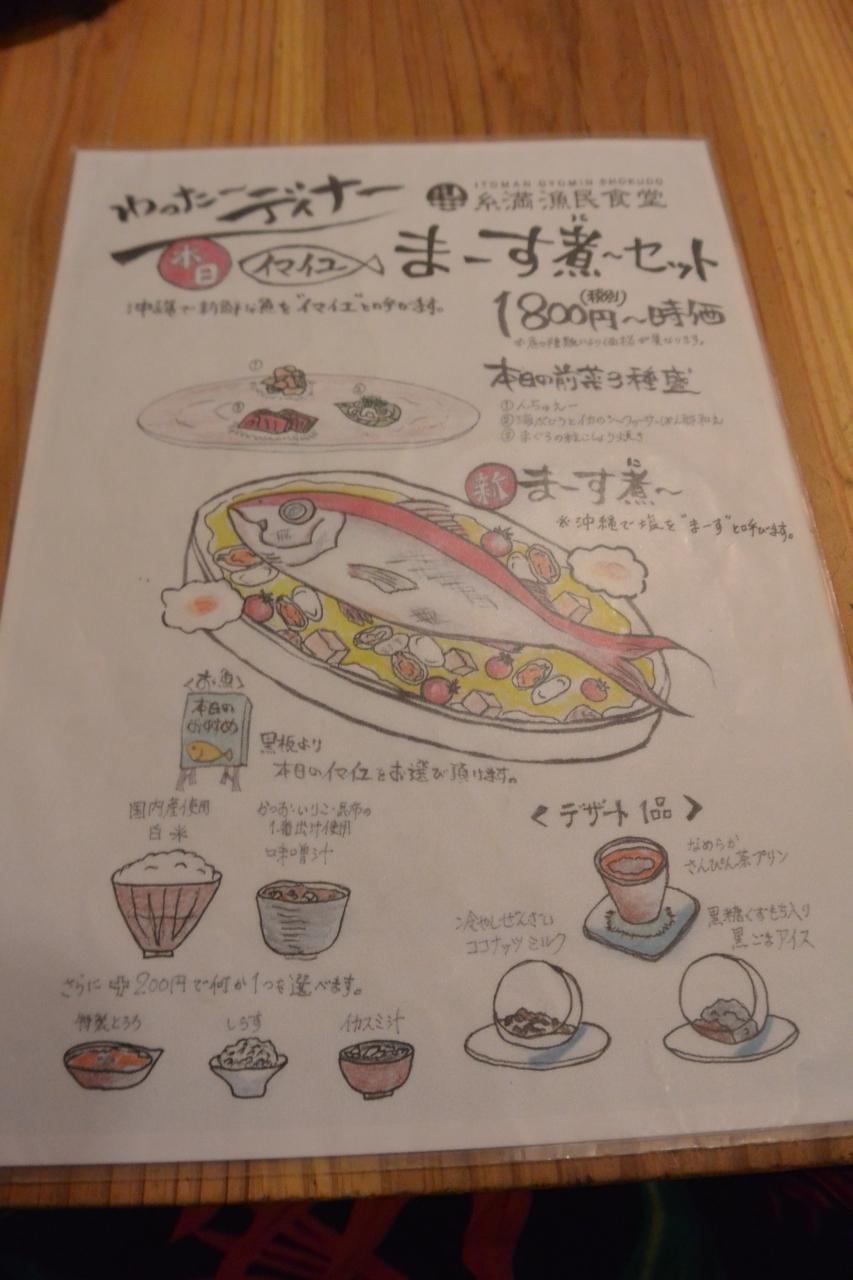 わったーディナー
ITOMAN GYOMIN SHOKUDO
糸満漁民食堂
本日 イマイユ まーす煮〜セット
に
沖縄で新鮮な魚を"イマイユ"と呼びます。
1800円〜時価
(税別)
※魚の種類により価格が異なります。
本日の前菜3種盛
① んちゅえー
② 海ぶどうとイカのシークヮーサーじめん酢和え
③ まぐろの粒こしょう焼き
① ② ③
新 まーす煮〜
に
※沖縄で塩を"まーす"と呼びます。
<お魚>
本日の
おすすめ
黒板より
本日のイマイユをお選び頂けます。
国内産使用
白米
かつお・いりこ・昆布の
1番出汁使用
味噌汁
<デザート1品>
なめらか
さんぴん茶プリン
冷やしぜんざい
ココナッツミルク
黒糖くずもち入り
黒ごまアイス
さらに 200円で何か1つを選べます。
特製とろろ
しらす
イカスミ汁